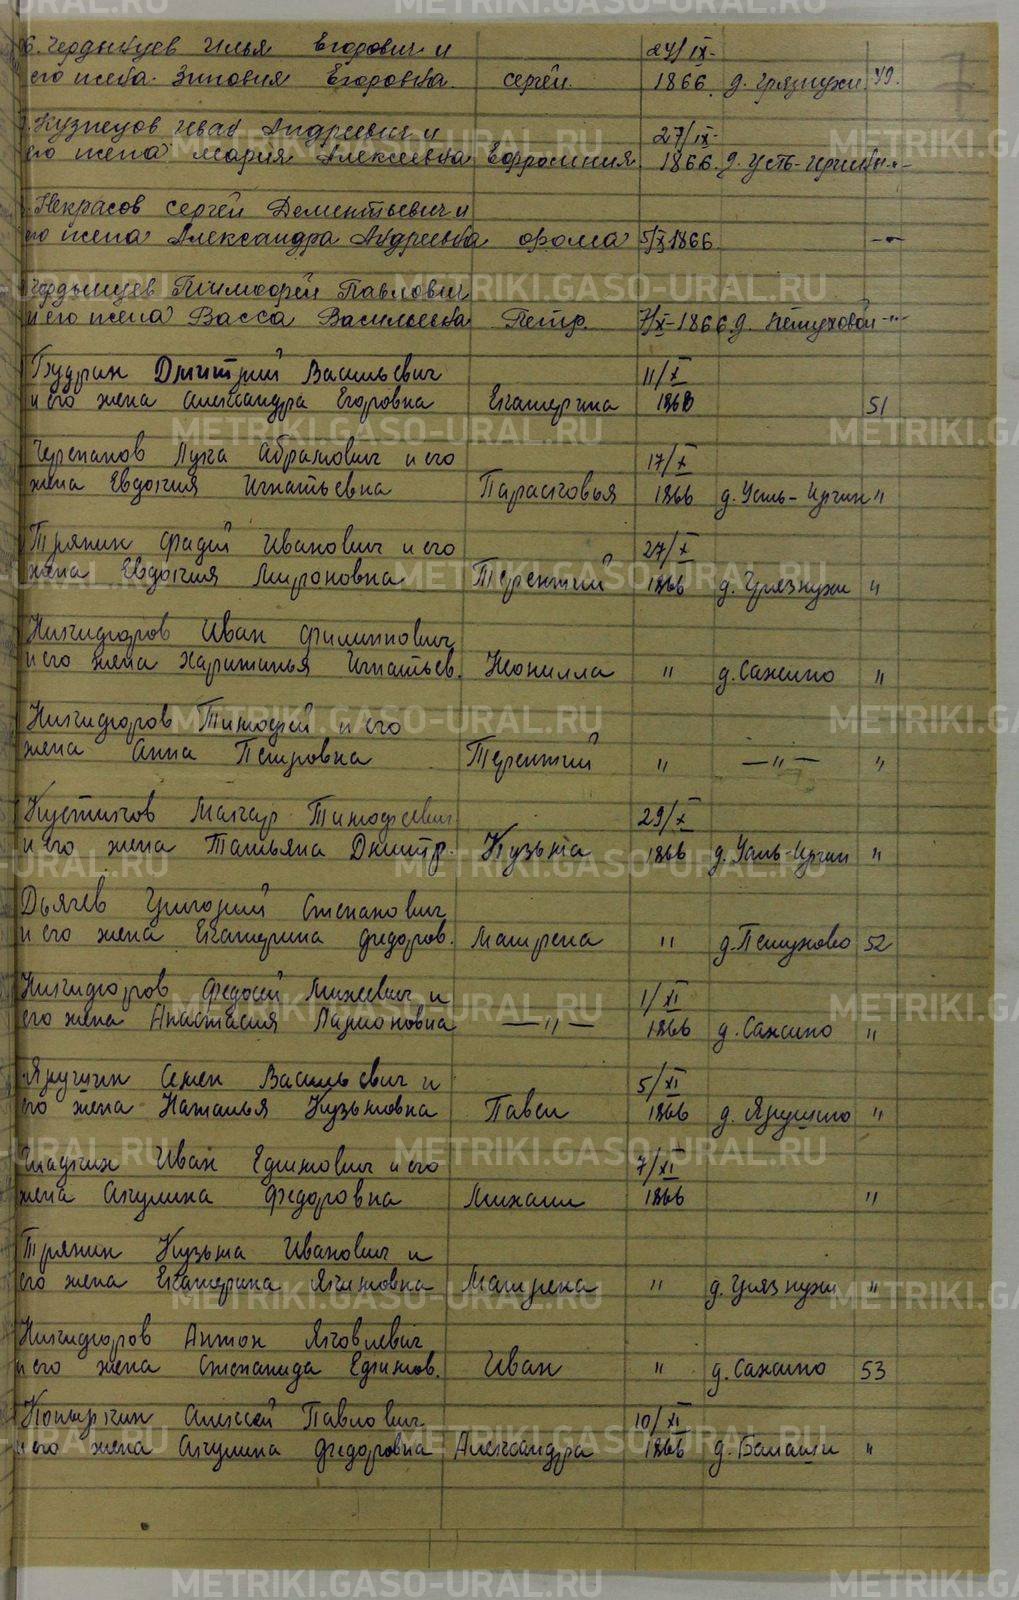 6. Чердынцев Илья Егорович и 24/IX-
его жена Зиновия Егоровна. Сергей. 1866. д. Грязнухи 49.
Кузнецов Иван Андреевич и 27/IX-
его жена Мария Алексеевна Евфросиния 1866. д. Усть-Иргин -"-
Некрасов Сергей Дементьевич и
его жена Александра Андреевна Фома 5/X 1866. -"-
Чердынцев Тимофей Павлович
и его жена Васса Васильевна Петр. 7/X-1866 д. Петуховой -"-
Будрин Дмитрий Васильевич 11/X
и его жена Александра Егоровна Екатерина 1866 51
Черепанов Лука Абрамович и его 17/X
жена Евдокия Игнатьевна Парасковья 1866 д. Усть-Иргин "
Тряпин Фадей Иванович и его 27/X
жена Евдокия Мироновна Терентий 1866 д. Грязнухи "
Никифоров Иван Филиппович
и его жена Харитинья Игнатьев. Неонилла " д. Сажино "
Никифоров Тимофей и его
жена Анна Петровна Терентий " —"— "
Кустиков Макар Тимофеевич 29/X
и его жена Татьяна Дмитр. Кузьма 1866 д. Усть-Иргин "
Дьячев Григорий Степанович
и его жена Екатерина Федоров. Матрена " д. Петухово 52
Никифоров Федосей Михеевич и 1/XI
его жена Анастасия Ларионовна —"— 1866 д. Сажино "
Ярушин Семен Васильевич и 5/XI
его жена Наталья Кузьмовна Павел 1866 д. Ярушино "
Иван Ефимович и его 7/XI
жена Акулина Федоровна Михаил 1866 "
Тряпин Кузьма Иванович и
его жена Екатерина Якимовна Матрена " д. Грязнухи "
Никифоров Антон Яковлевич
и его жена Степанида Ефимов. Иван " д. Сажино 53
Копыркин Алексей Павлович 10/XI
и его жена Акулина Федоровна Александра 1866 д. Балаши "
METRIKI.GASO-URAL.RU